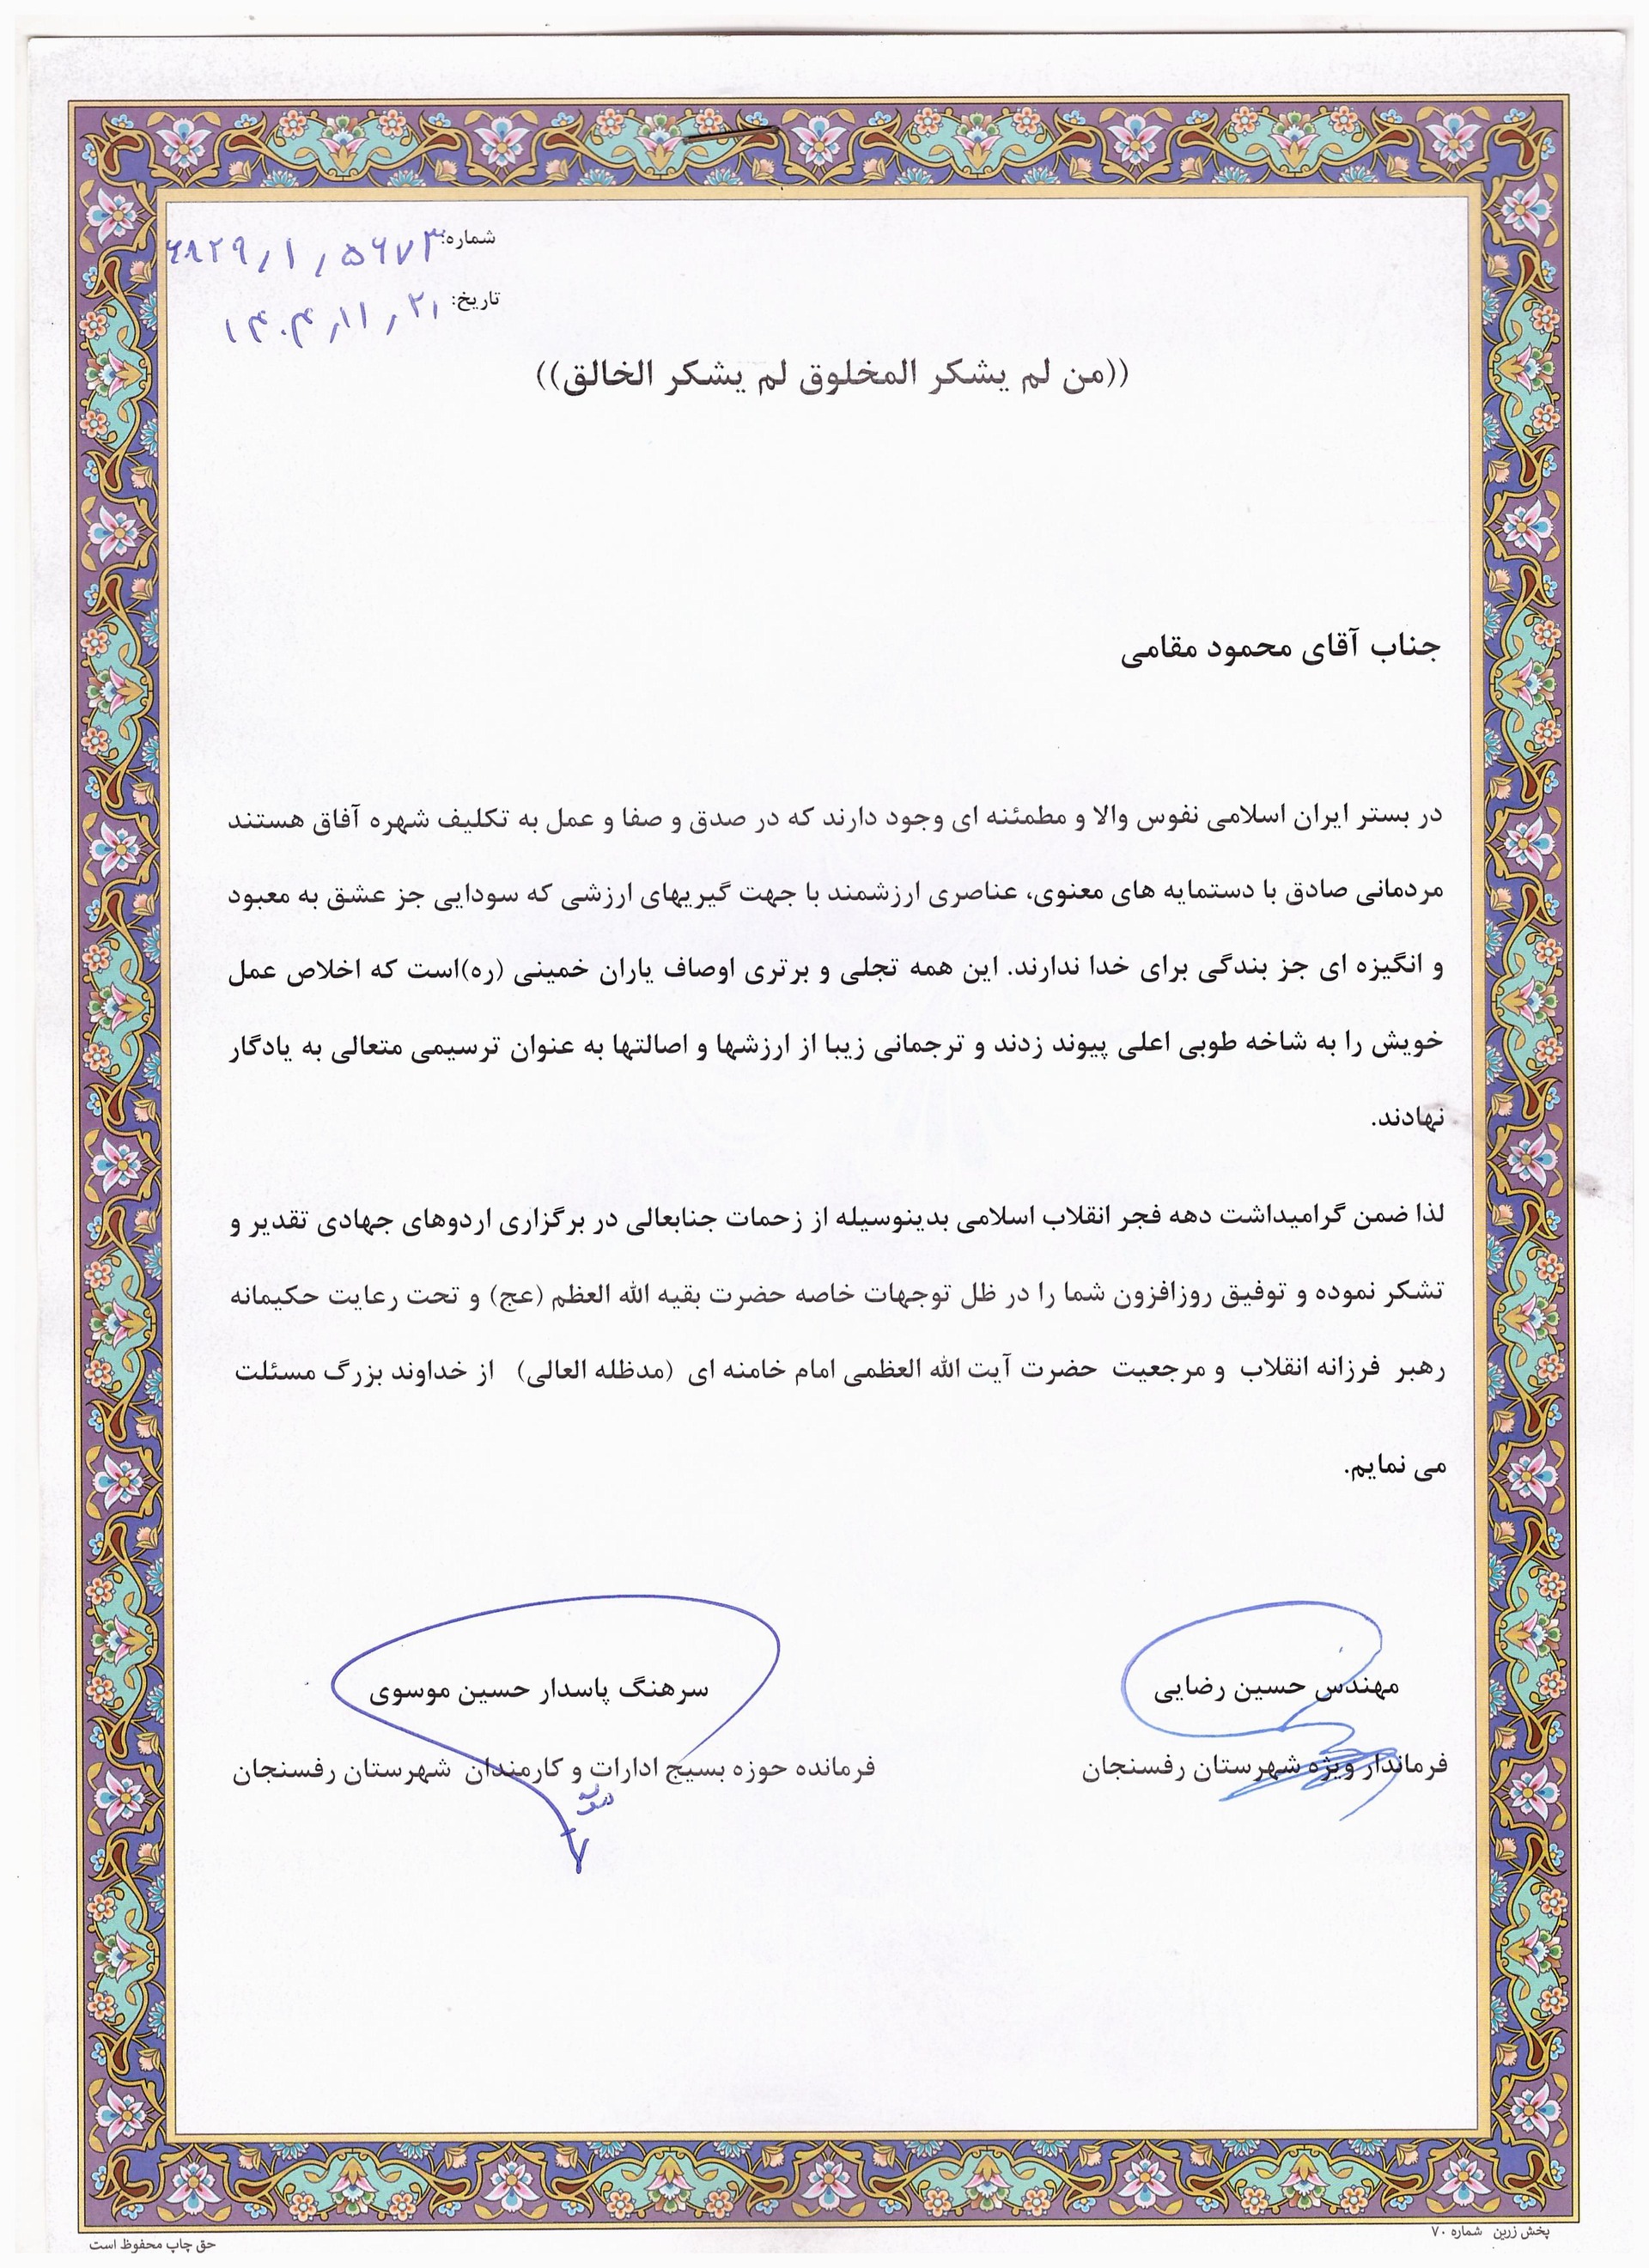 شماره: ۶۸۲۹/۱/۵۶۷۳
تاریخ: ۱۴۰۴/۱۱/۲۱
((من لم یشکر المخلوق لم یشکر الخالق))
جناب آقای محمود مقامی
در بستر ایران اسلامی نفوس والا و مطمئنه ای وجود دارند که در صدق و صفا و عمل به تکلیف شهره آفاق هستند
مردمانی صادق با دستمایه های معنوی، عناصری ارزشمند با جهت گیریهای ارزشی که سودایی جز عشق به معبود
و انگیزه ای جز بندگی برای خدا ندارند. این همه تجلی و برتری اوصاف یاران خمینی (ره)است که اخلاص عمل
خویش را به شاخه طوبی اعلی پیوند زدند و ترجمانی زیبا از ارزشها و اصالتها به عنوان ترسیمی متعالی به یادگار
نهادند.
لذا ضمن گرامیداشت دهه فجر انقلاب اسلامی بدینوسیله از زحمات جنابعالی در برگزاری اردوهای جهادی تقدیر و
تشکر نموده و توفیق روزافزون شما را در ظل توجهات خاصه حضرت بقیه الله العظم (عج) و تحت رعایت حکیمانه
رهبر فرزانه انقلاب و مرجعیت حضرت آیت الله العظمی امام خامنه ای (مدظله العالی) از خداوند بزرگ مسئلت
می نمایم.
مهندس حسین رضایی
فرماندار ویژه شهرستان رفسنجان
سرهنگ پاسدار حسین موسوی
فرمانده حوزه بسیج ادارات و کارمندان شهرستان رفسنجان
پخش زرین شماره ۷۰
حق چاپ محفوظ است